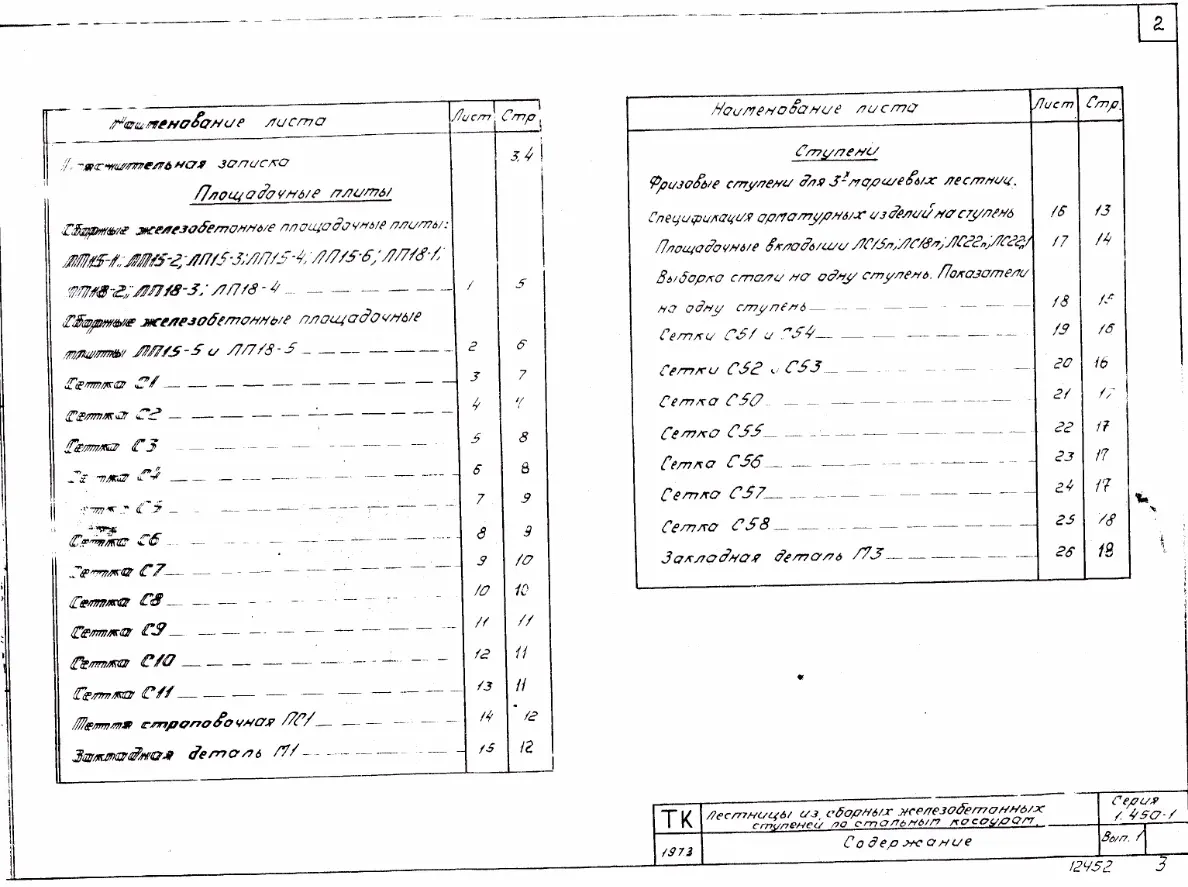 2
Наименование листа Лист Стр.
Пояснительная записка 3.4
Площадочные плиты
Сборные железобетонные площадочные плиты:
ЛП15-1; ЛП15-2; ЛП15-3; ЛП15-4; ЛП15-6; ЛП18-1;
ЛП18-2; ЛП18-3; ЛП18-4 1 5
Сборные железобетонные площадочные
плиты ЛП15-5 и ЛП18-5 2 6
Сетка С1 3 7
Сетка С2 4
Сетка С3 5 8
Сетка С4 6 8
Сетка С5 7 9
Сетка С6 8 9
Сетка С7 9 10
Сетка С8 10 10
Сетка С9 11 11
Сетка С10 12 11
Сетка С11 13 11
Петля строповочная ПС1 14 12
Закладная деталь М1 15 12
Наименование листа Лист Стр.
Ступени
Фризовые ступени для 3х маршевых лестниц.
Спецификация арматурных изделий на ступень 16 13
Площадочные вкладыши ЛС15п; ЛС18п; ЛС22п; 17 14
Выборка стали на одну ступень. Показатели
на одну ступень 18
Сетки С51 и С54 19 16
Сетки С52 и С53 20 16
Сетка С50 21 17
Сетка С55 22 17
Сетка С56 23 17
Сетка С57 24 17
Сетка С58 25 18
Закладная деталь М3 26 18
ТК Лестницы из сборных железобетонных
ступеней по стальным косоурам. Серия
1.450-1
1973 Содержание Вып. 1
12452 3